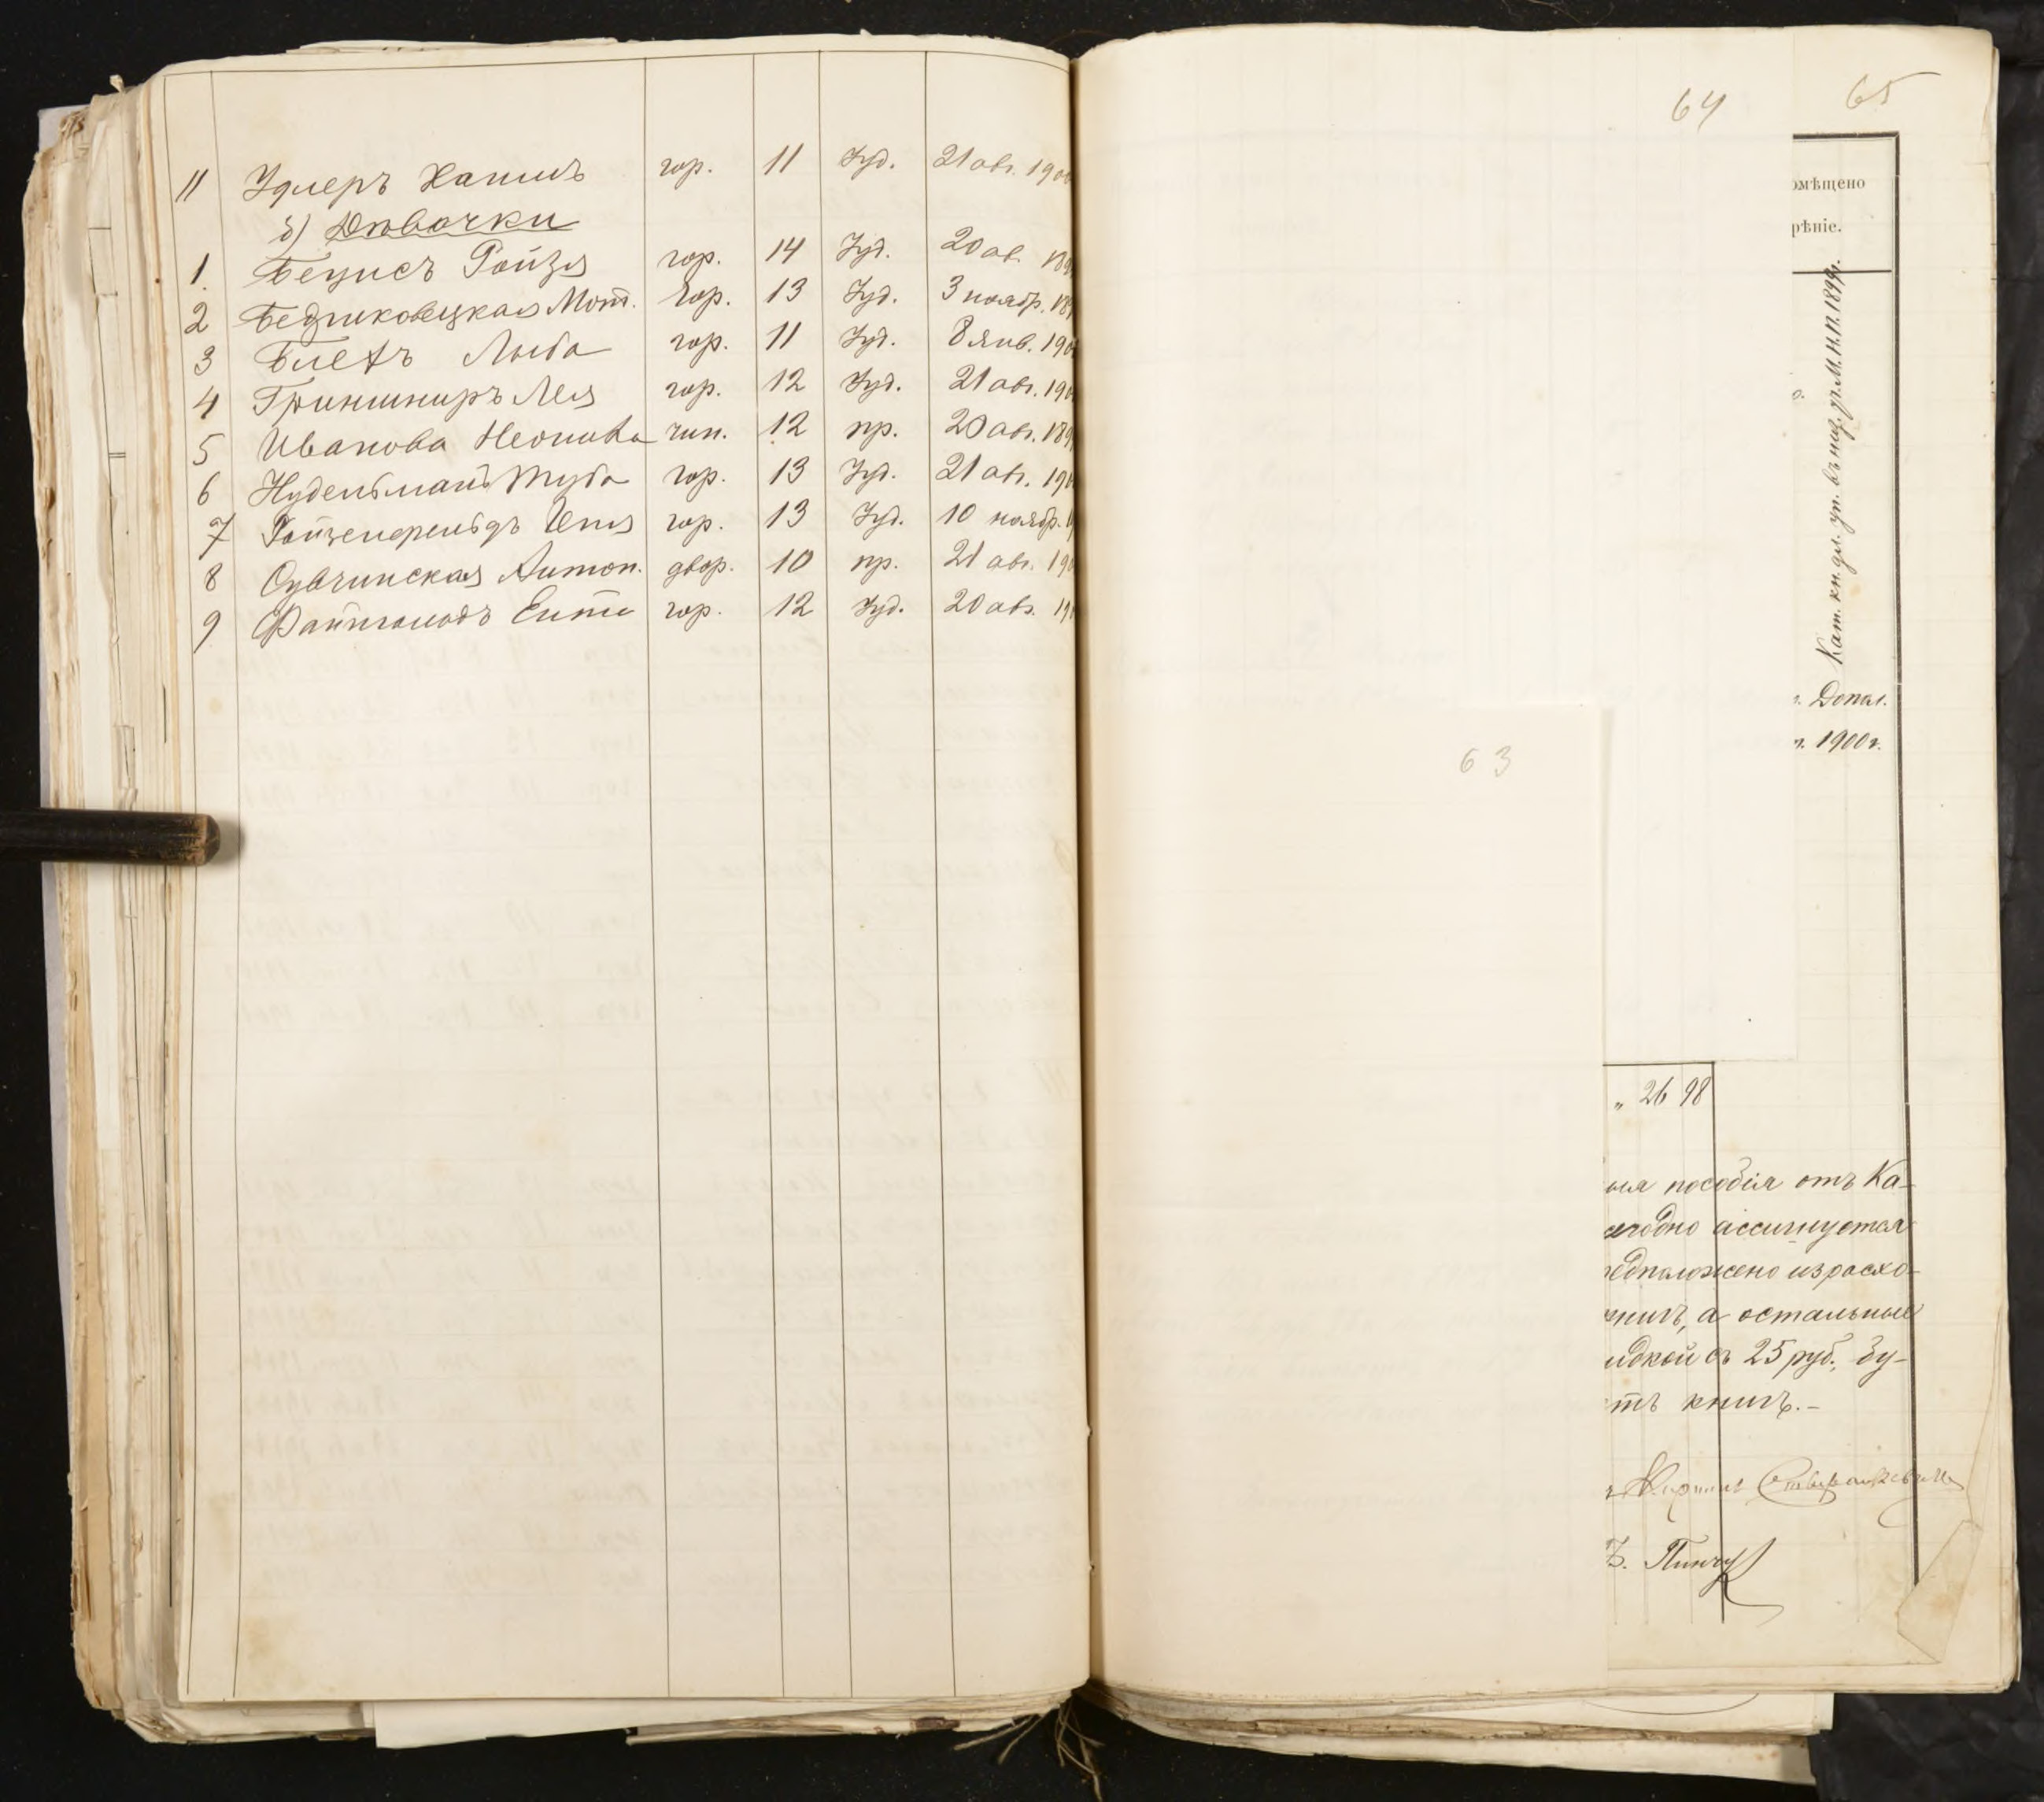 11 Удлеръ Хаимъ гор. 11 Iуд. 21 авг. 190
б) Дѣвочки
1. Бецисъ Ройзя гор. 14 Iуд. 20 ав. 189
2 Бедриковецкая Мот. гор. 13 Iуд. 3 ноябр. 18
3 Блехъ Люба гор. 11 Iуд. 8 янв. 190
4 Гриншпиръ Лея гор. 12 Iуд. 21 авг. 190
5 Иванова Неонила чин. 12 пр. 20 авг. 189
6 Нудельманъ Туба гор. 13 Iуд. 21 авг. 190
7 Ройзенфельдъ Ипя гор. 13 Iуд. 10 ноябр.
8 Сувчинская Антон. двор. 10 пр. 21 авг. 190
9 Файнгольдъ Ента гор. 12 Iуд. 20 авг. 19
64
65
омѣщено
рѣніе.
Кат. кн. дл. уп. въ низ. уч. М. Н. П. 1899г.
. Допол.
1900г.
63
„ 26 98
ыя пособія отъ Ка-
егодно ассигнуется
едположено израсхо-
книгъ, а остальные
идкой съ 25 руб., бу-
тъ книгъ.-
Б. Пинчук